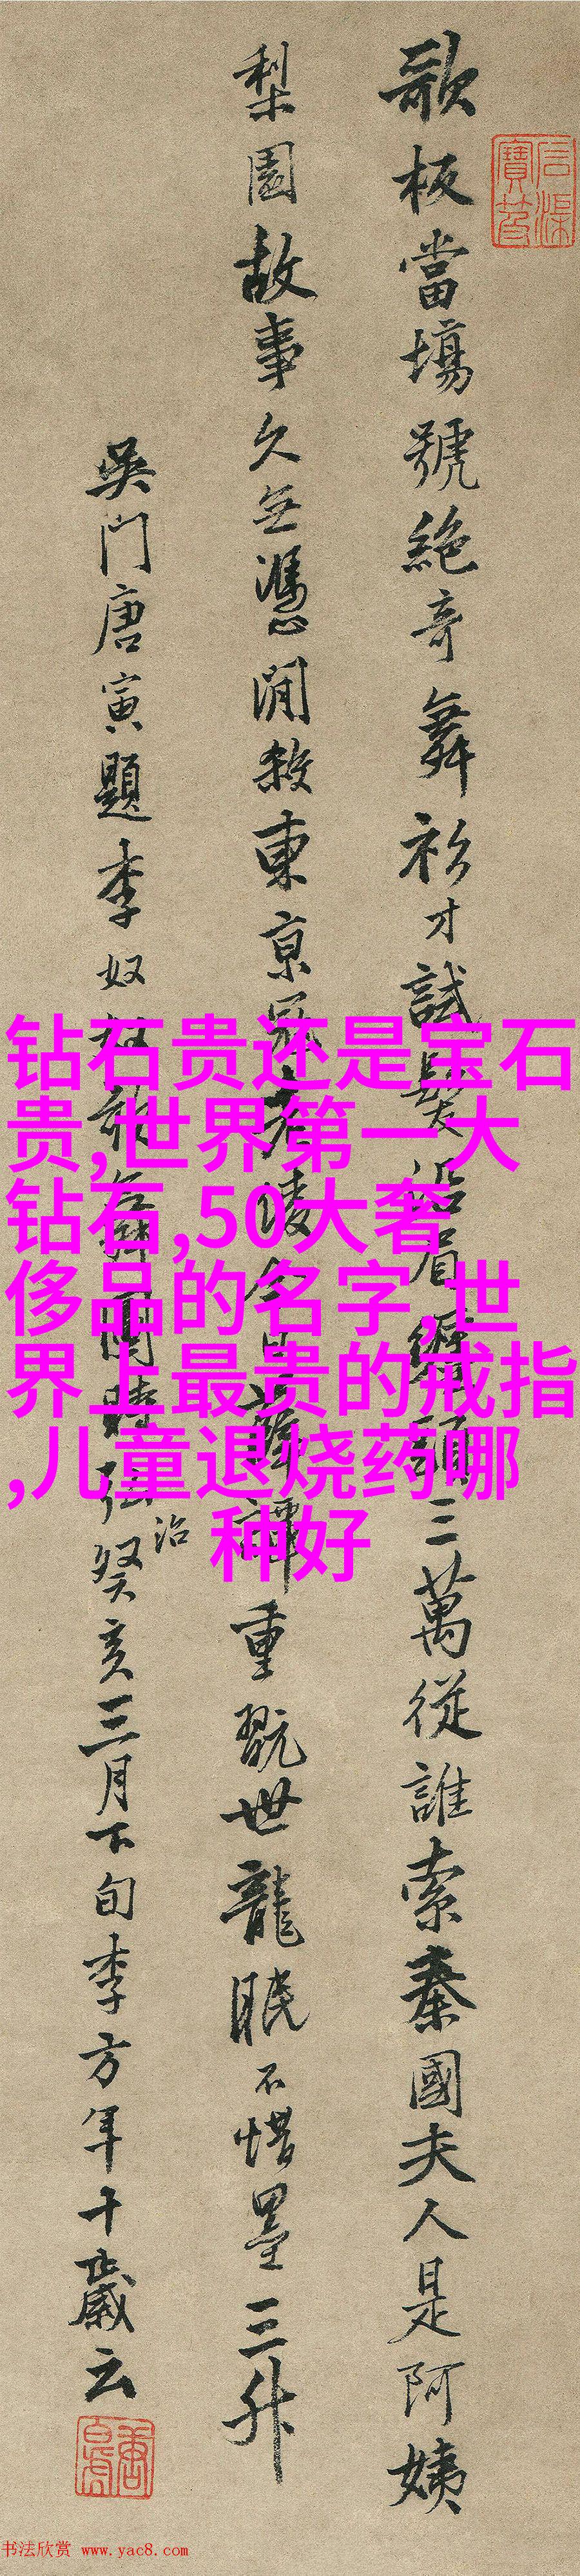 石渠寶笈
歌板當場號絕奇舞衫才試髮沿眉纏頭三萬從誰索秦國夫人是阿姨
梨園故事久無憑閒殺東京老陵今日薛譚重翫世龍眠不惜墨三升
吳門唐寅題李奴奴歌舞圖時弘治癸亥三月下旬李方年十歲云
钻石贵还是宝石
贵,世界第一大
钻石,50大奢
侈品的名字,世
界上最贵的戒指
,儿童退烧药哪
种好
书法欣赏 www.yac8.com